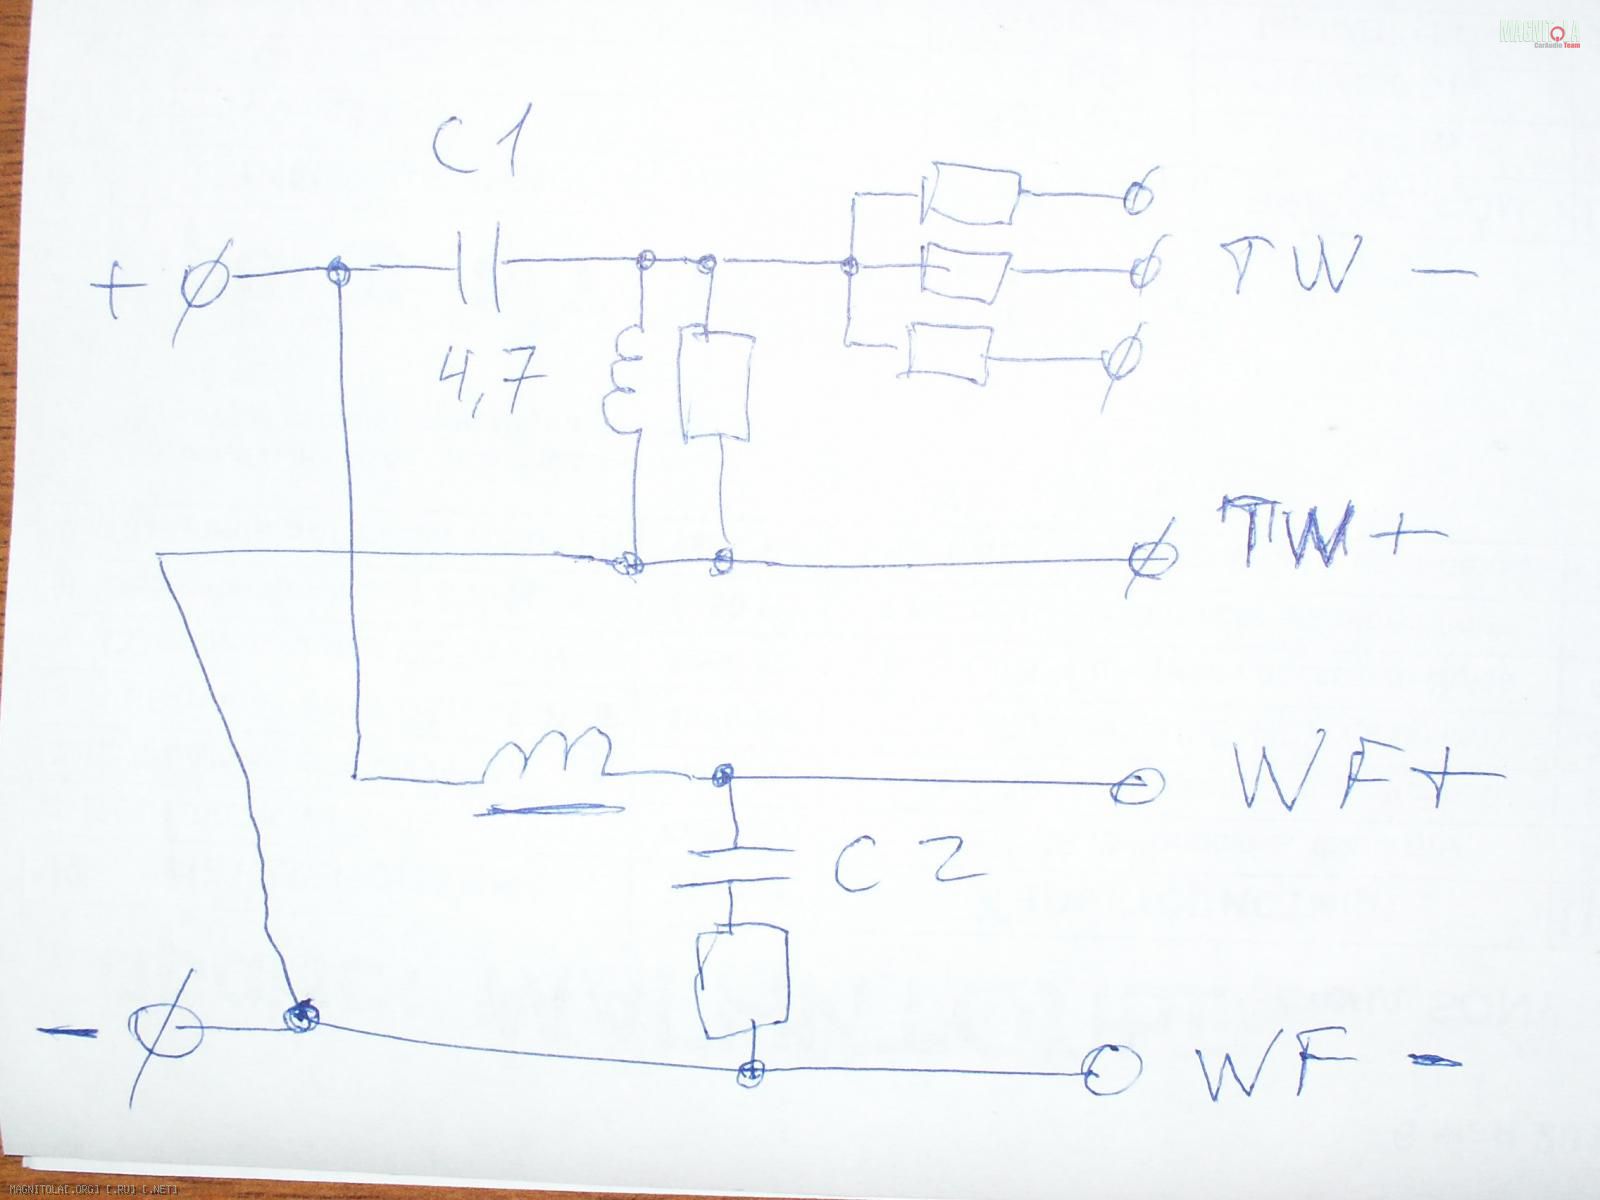 MAGNITOLA
CarAudio Team
C1
+
TW —
4,7
TW+
WF+
C2
-
WF -
MAGNITOLA[.ORG] [.RU] [.NET]